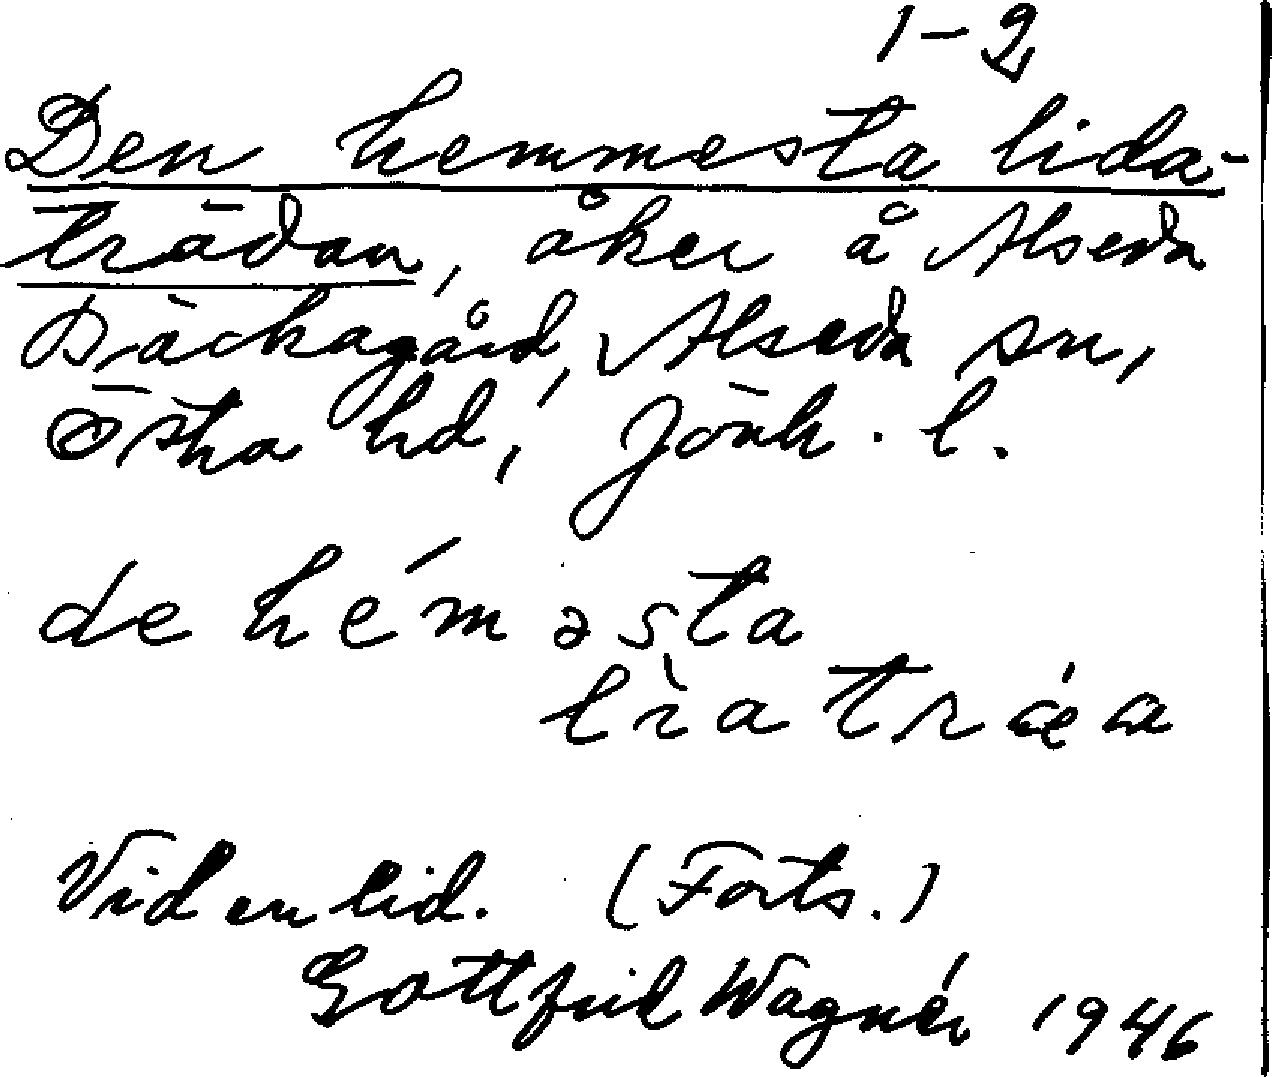 1-2
Den hemmesta lida-
trädan, åker å Alseda
Bäckagård, Alseda sn,
Östra hd, Jönk. l.
de héməsta
lìatrǽa
Vid en lid. (Forts.)
Gottfrid Wagnér 1946